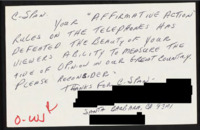 C-SPAN
YOUR "AFFIRMATIVE ACTION"
RULES ON THE TELEPHONES HAS
DEFEATED THE BEAUTY OF YOUR
VIEWERS ABILITY TO MEASURE THE
TIVE OF OPINION IN OUR GREAT COUNTRY.
PLEASE RECONSIDER.
THANKS FOR C-SPAN.
SANTA BARBARA, CA